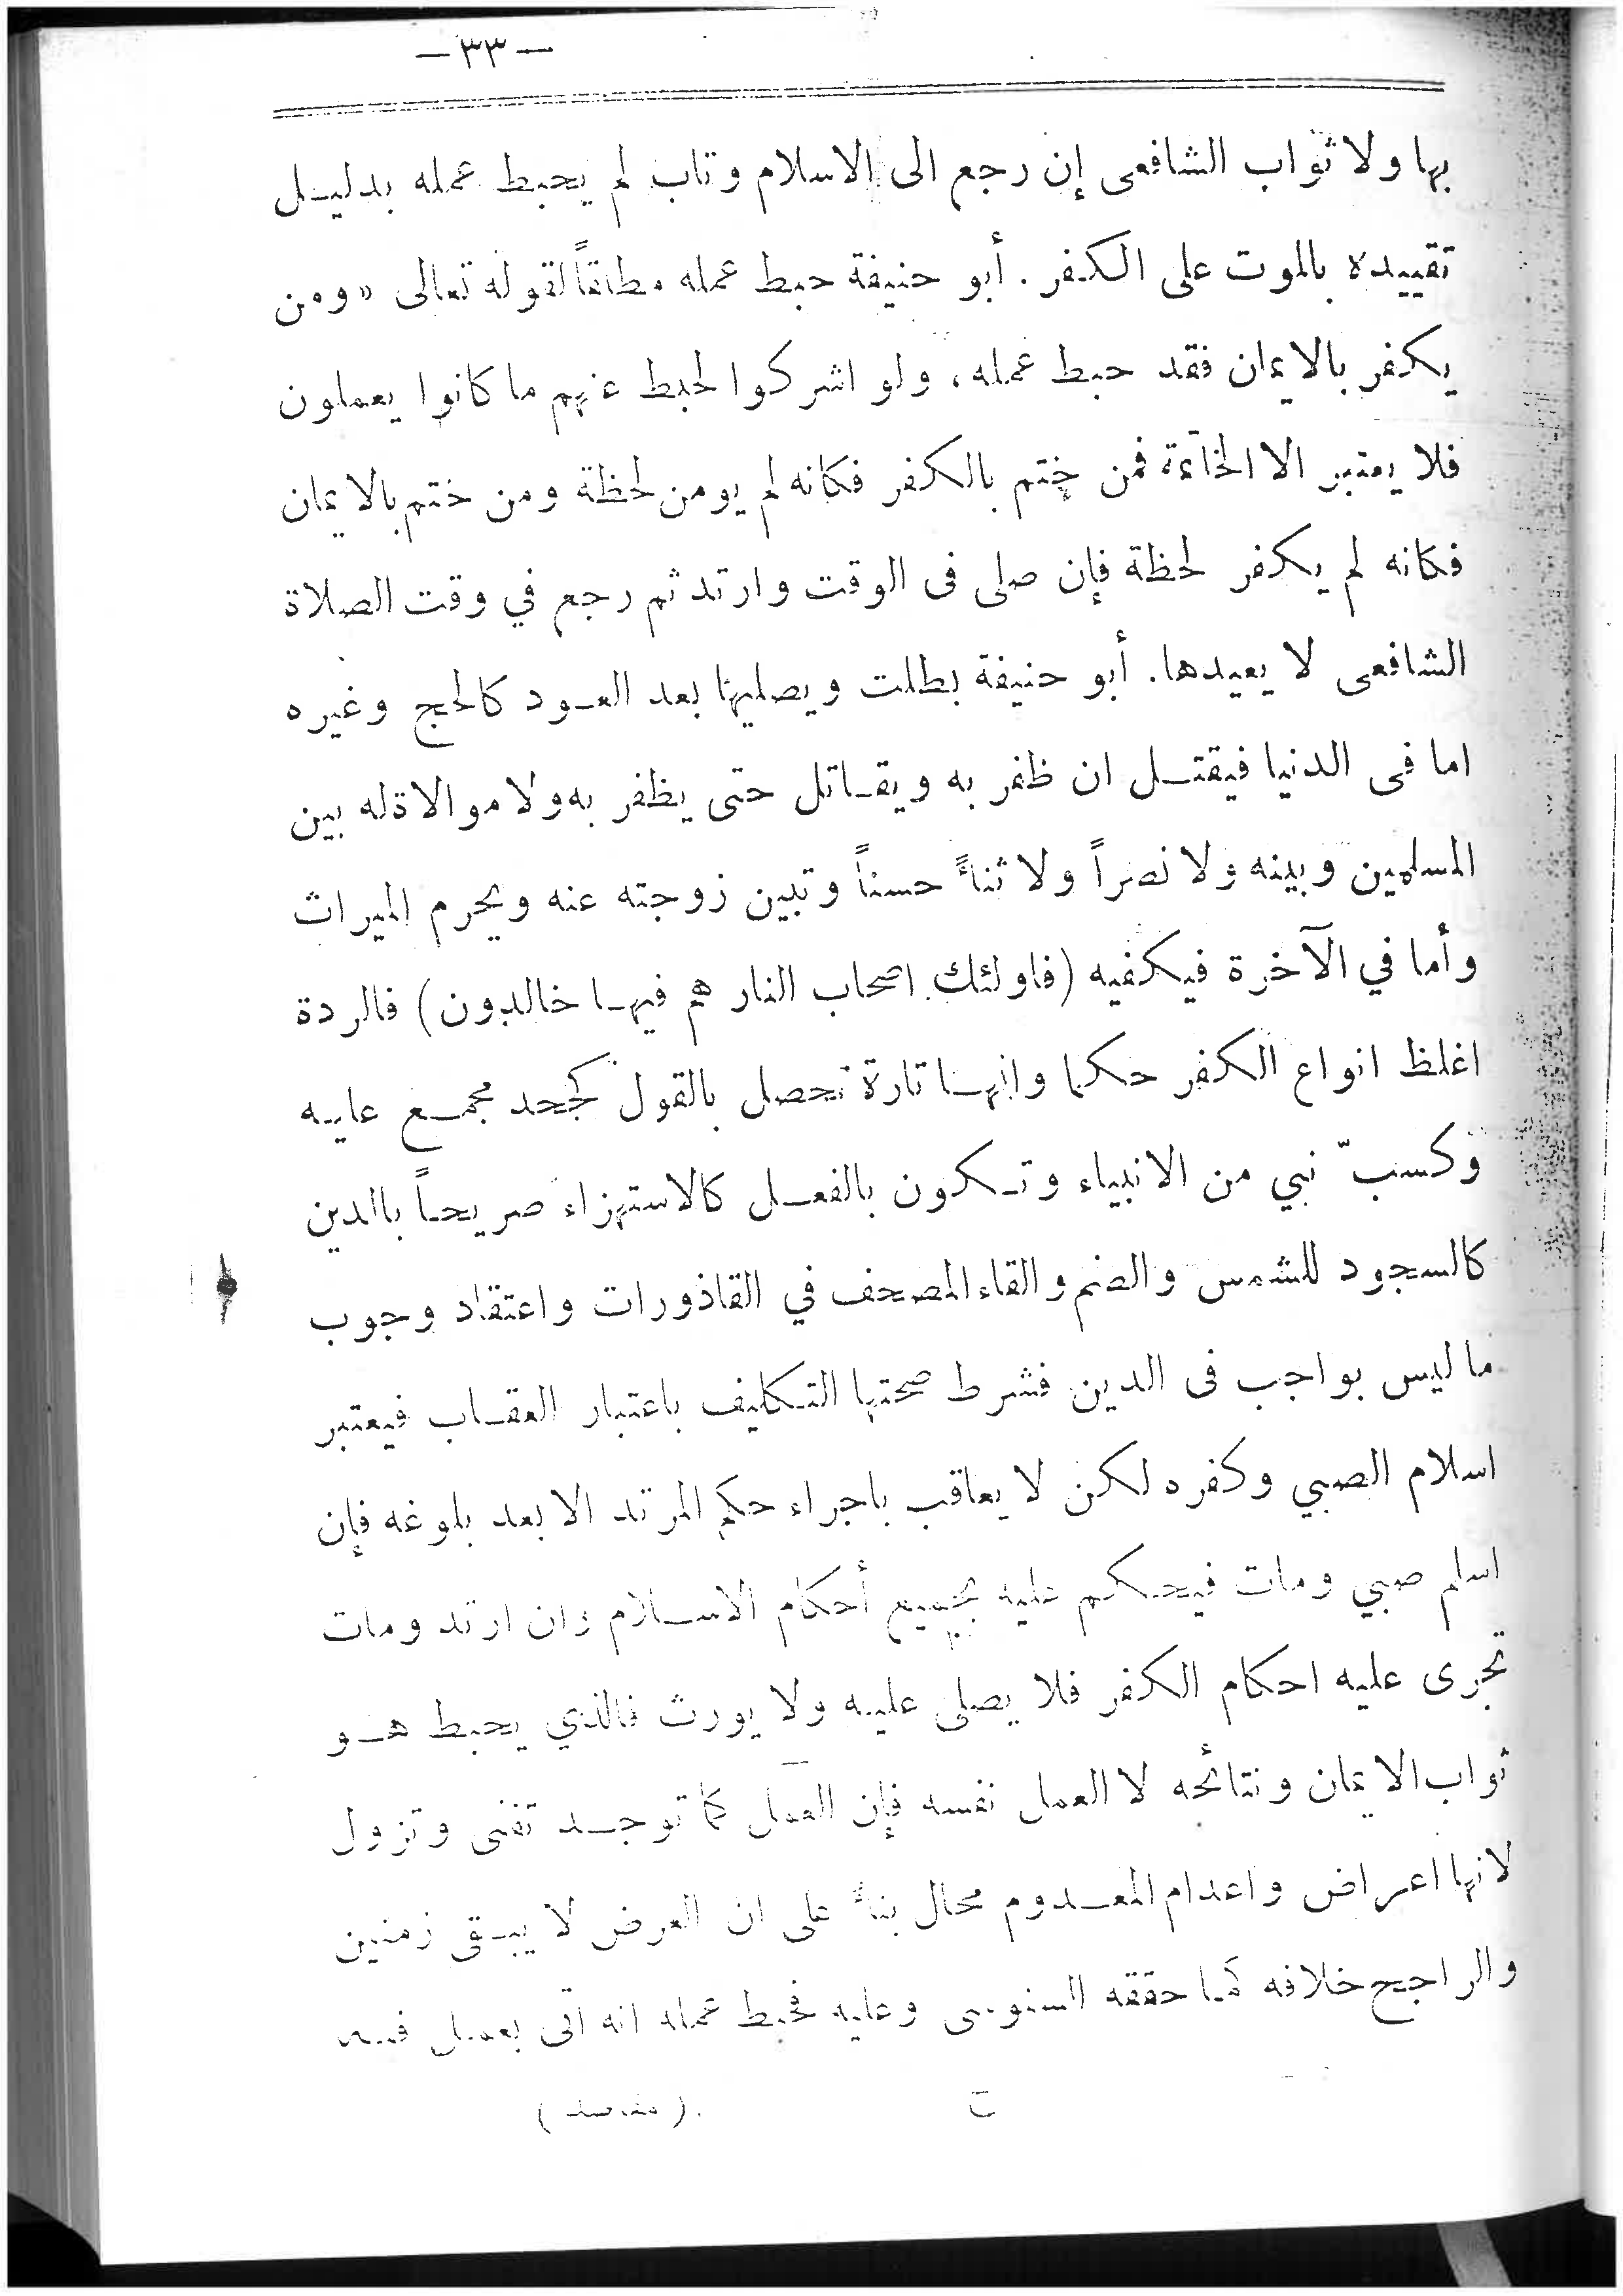 —٣٣—
بها ولا ثواب الشافعى إن رجع الى الاسلام وتاب لم يحبط عمله بدليـل
تقييده بالموت على الكفر. أبو حنيفة حبط عمله مطلقاً لقوله تعالى «ومن
يكفر بالايمان فقد حبط عمله، ولو اشركوا لحبط عنهم ما كانوا يعملون
فلا يعتبر الا الخاتمة فمن ختم بالكفر فكانه لم يومن لحظة ومن ختم بالايمان
فكانه لم يكفر لحظة فإن صلى فى الوقت وارتد ثم رجع في وقت الصلاة
الشافعى لا يعيدها. أبو حنيفة بطلت ويصليها بعد العـود كالحج وغيره
اما فى الدنيا فيقتـل ان ظفر به ويقـاتل حتى يظفر به ولا موالاة له بين
المسلمين وبينه ولا نصراً ولا ثناءً حسناً وتبين زوجته عنه ويحرم الميراث
وأما في الآخرة فيكفيه (فاولئك اصحاب النار هم فيهـا خالدون) فالردة
اغلظ انواع الكفر حكما وانهـا تارة تحصل بالقول كجحد مجمـع عليه
وكسبّ نبي من الانبياء وتـكون بالفعـل كالاستهزاء صريحـاً باالدين
كالسجود للشمس والصنم والقاء المصحف في القاذورات واعتقاد وجوب
ما ليس بواجب فى الدين فشرط صحتها التـكليف باعتبار العقـاب فيعتبر
اسلام الصبي وكفره لكن لا يعاقب باجراء حكم المرتد الا بعد بلوغه فإن
اسلم صبي ومات فيحـكم عليه بجميع أحكام الاسـلام وان ارتد ومات
تجرى عليه احكام الكفر فلا يصلى عليـه ولا يورث فالذي يحبط هـو
ثواب الايمان ونتائجه لا العمل نفسه فإن العمل كما توجـد تفنى وتزول
لانها اعراض واعدام المعـدوم محال بناءً على ان العرض لا يبـقى زمنين
والراجح خلافه كمـا حققه السنوسى وعليه فحبط عمله انه اتى بعمـل فيـه
(مقاصد)